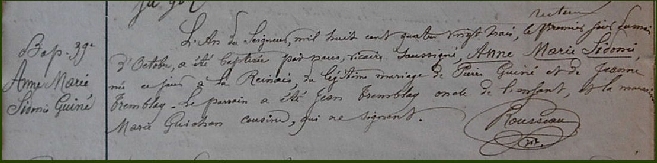 recteur
Bap. 39e
Anne Marie
Sidonie Guiné
L'An du Seigneur, mil huit cent quatre vingt trois, le premier jour
d'Octobre, a été baptisée par nous, vicaire soussigné, Anne Marie Sidonie,
née ce jour à la Reinais du légitime mariage de Pierre Guiné et de Jeanne
Tremblay. Le parrain a été Jean Tremblay oncle de l'enfant, et la marraine
Marie Guichan cousine, qui ne signent.
Rousseau